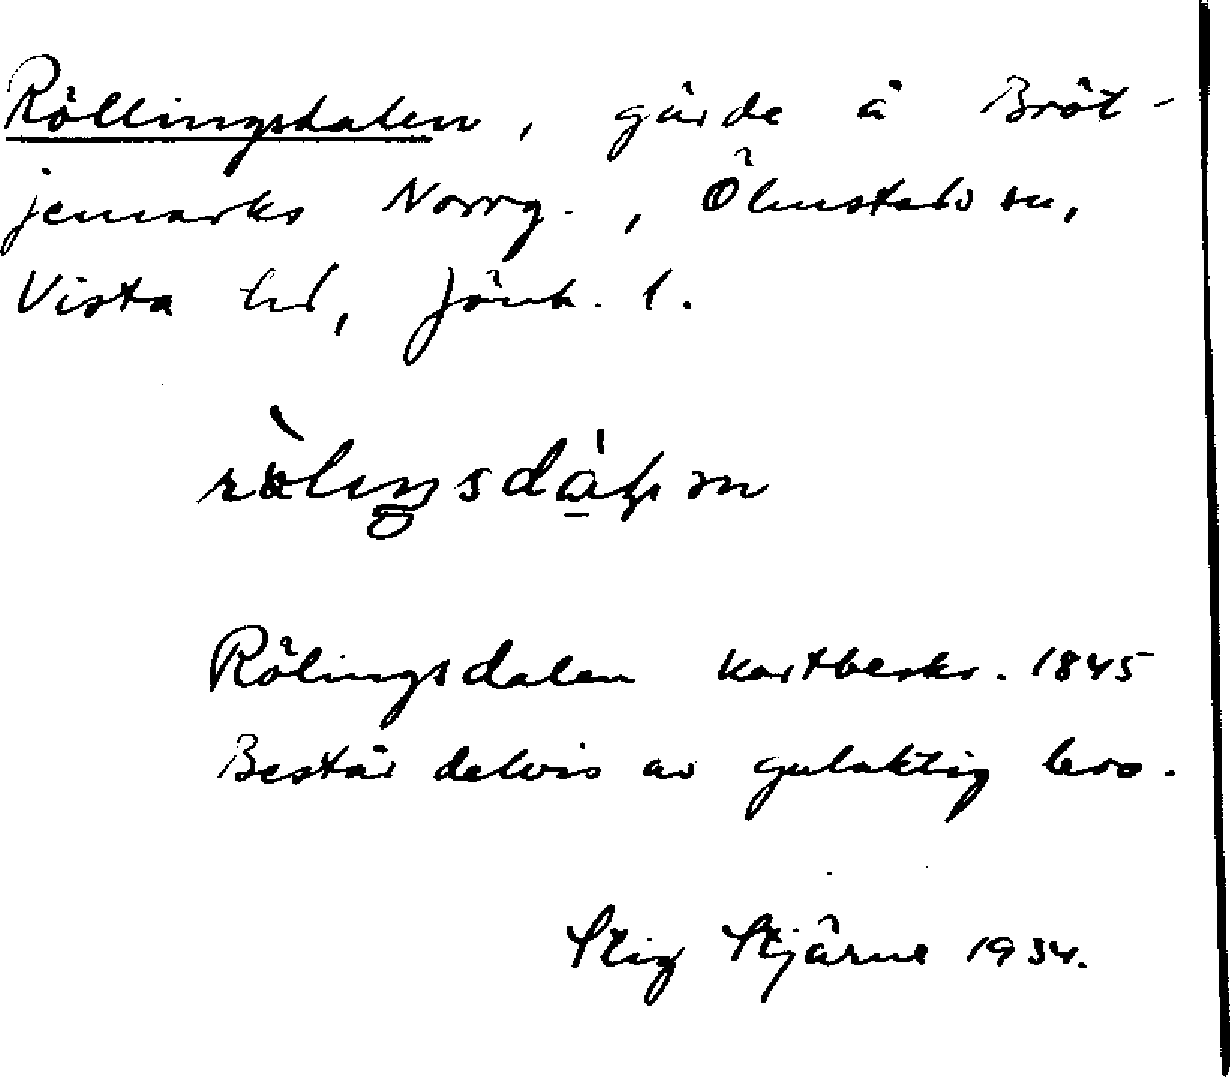 Röllingsdalen, gärde å Bröt-
jemarks Norrg., Ölmstads sn,
Vista hd, Jönk. l.
Rölingsdalen kartbeskr. 1845
Består delvis av gulaktig lera.
Stig Stjärne 1934.